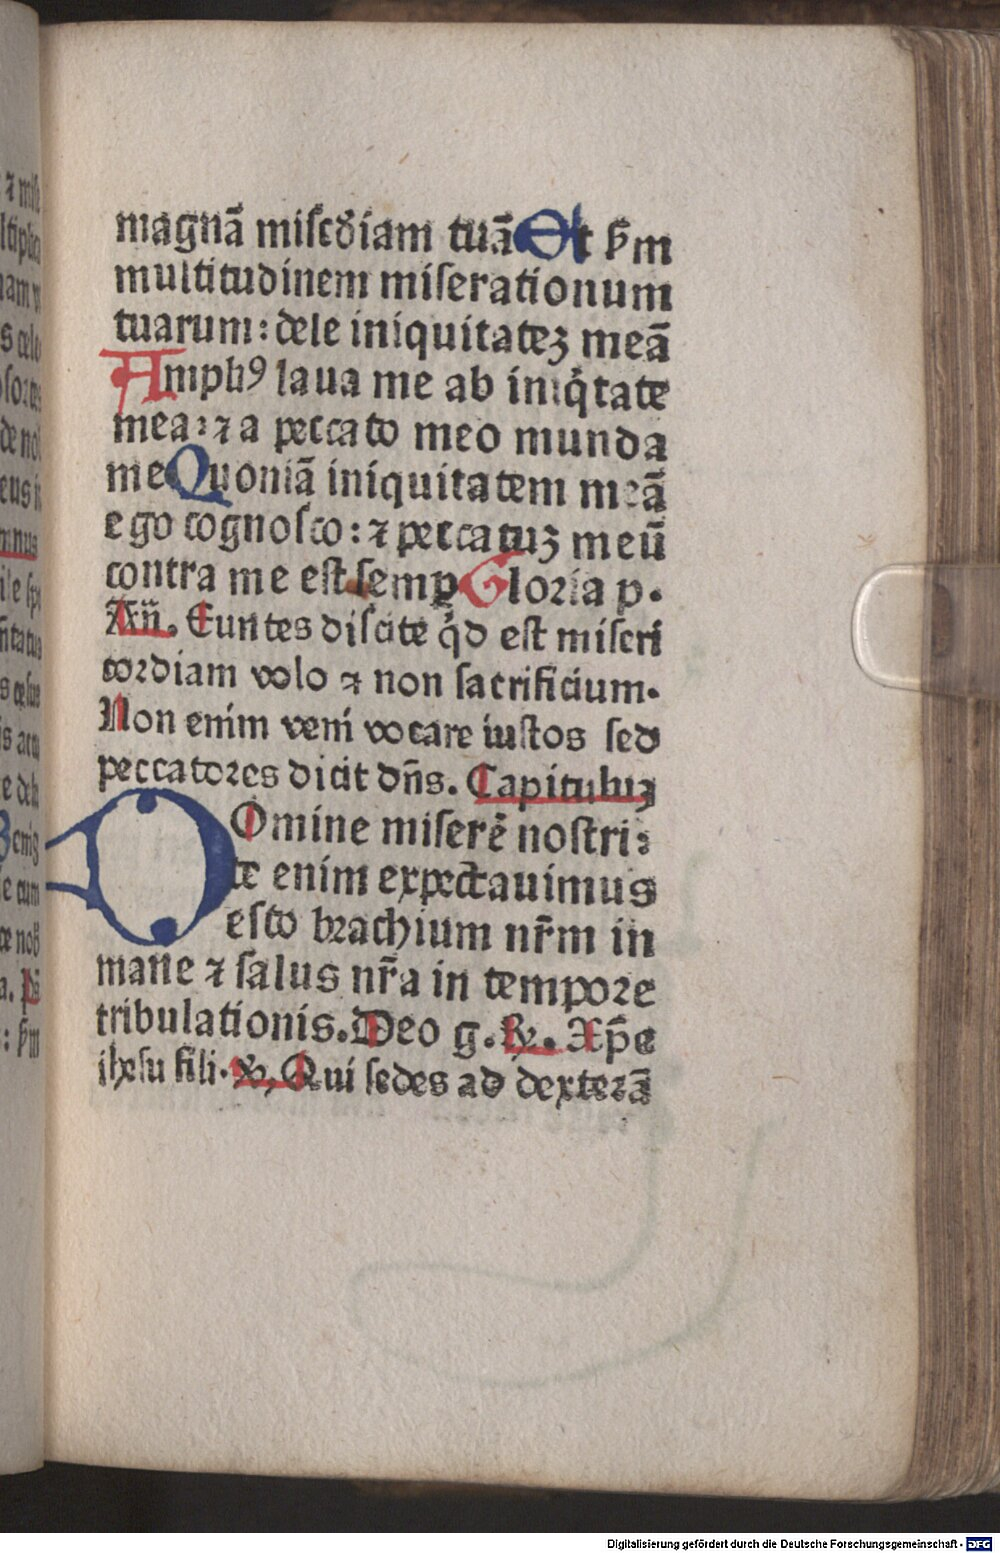 magnā miſcðiam tuā Et ẜm
multitudinem miſerationum
tuarum: dele iniquitateꝫ meā
Ampliꝰ laua me ab iniq̇tate
mea: ⁊ a peccato meo munda
me Quoniā iniquitatem meā
ego cognoſco: ⁊ peccatuꝫ meū
contra me eſt ſemꝑ Gloria p.
Añ. Euntes diſcite q̇d eſt miſeri
cordiam volo ⁊ non ſacrificium.
Non enim veni vocare iuſtos ſed
peccatores dicit dñs. Capituluꝫ
DOmine miſerē noſtri:
te enim expectauimus
eſto brachium nr̄m in
mane ⁊ ſalus nr̄a in tempore
tribulationis. Deo g. ℟. Xp̄e
iheſu fili. ℣. Qui ſedes ad dexterā
Digitalisierung gefördert durch die Deutsche Forschungsgemeinschaft - DFG